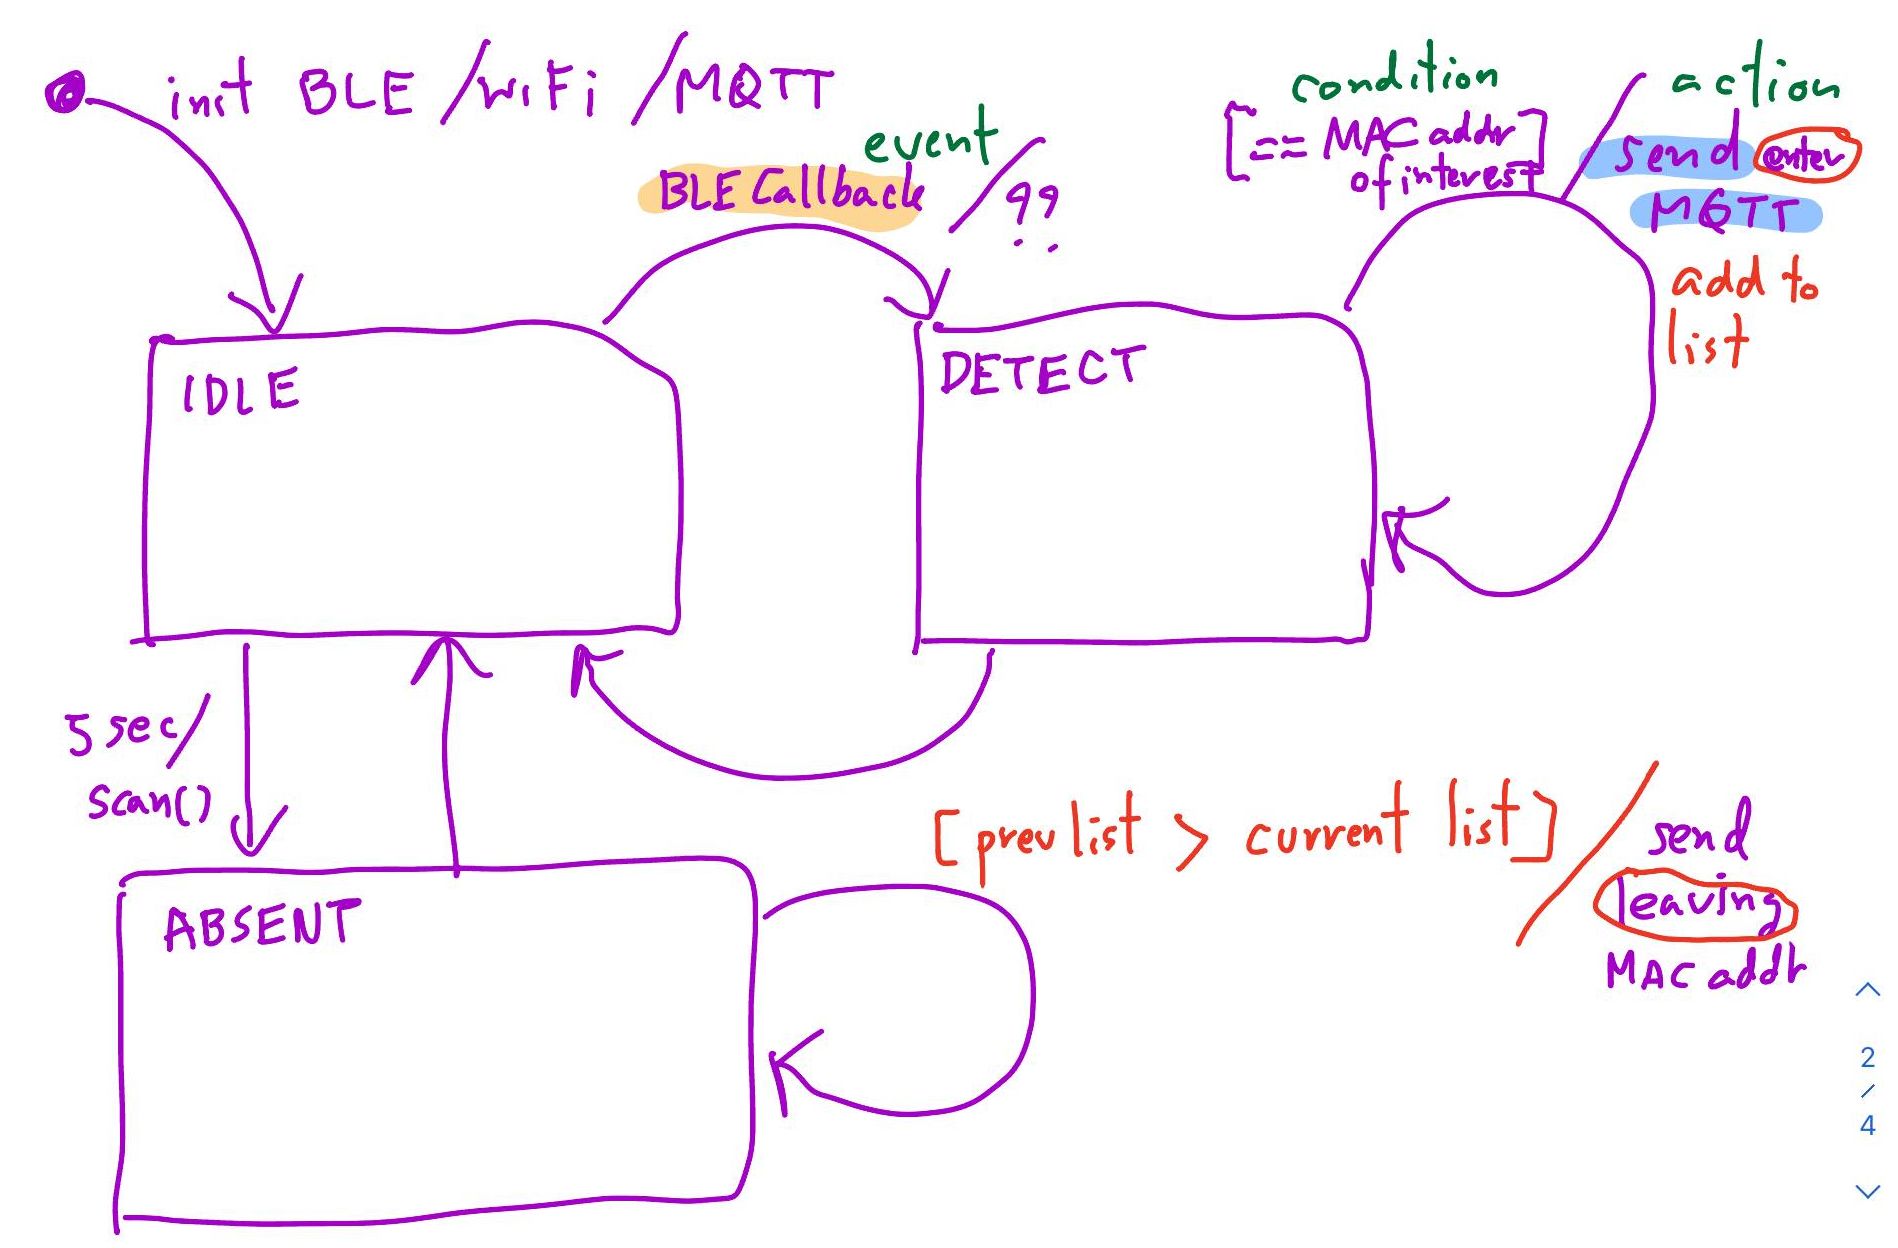 init BLE / WiFi / MQTT
event
BLE Callback / ??
condition
[== MAC addr
of interest]
/ action
send enter
MQTT
add to
list
IDLE
DETECT
5 sec /
scan()
[prev list > current list] /
send
leaving
MAC addr
ABSENT
2
/
4